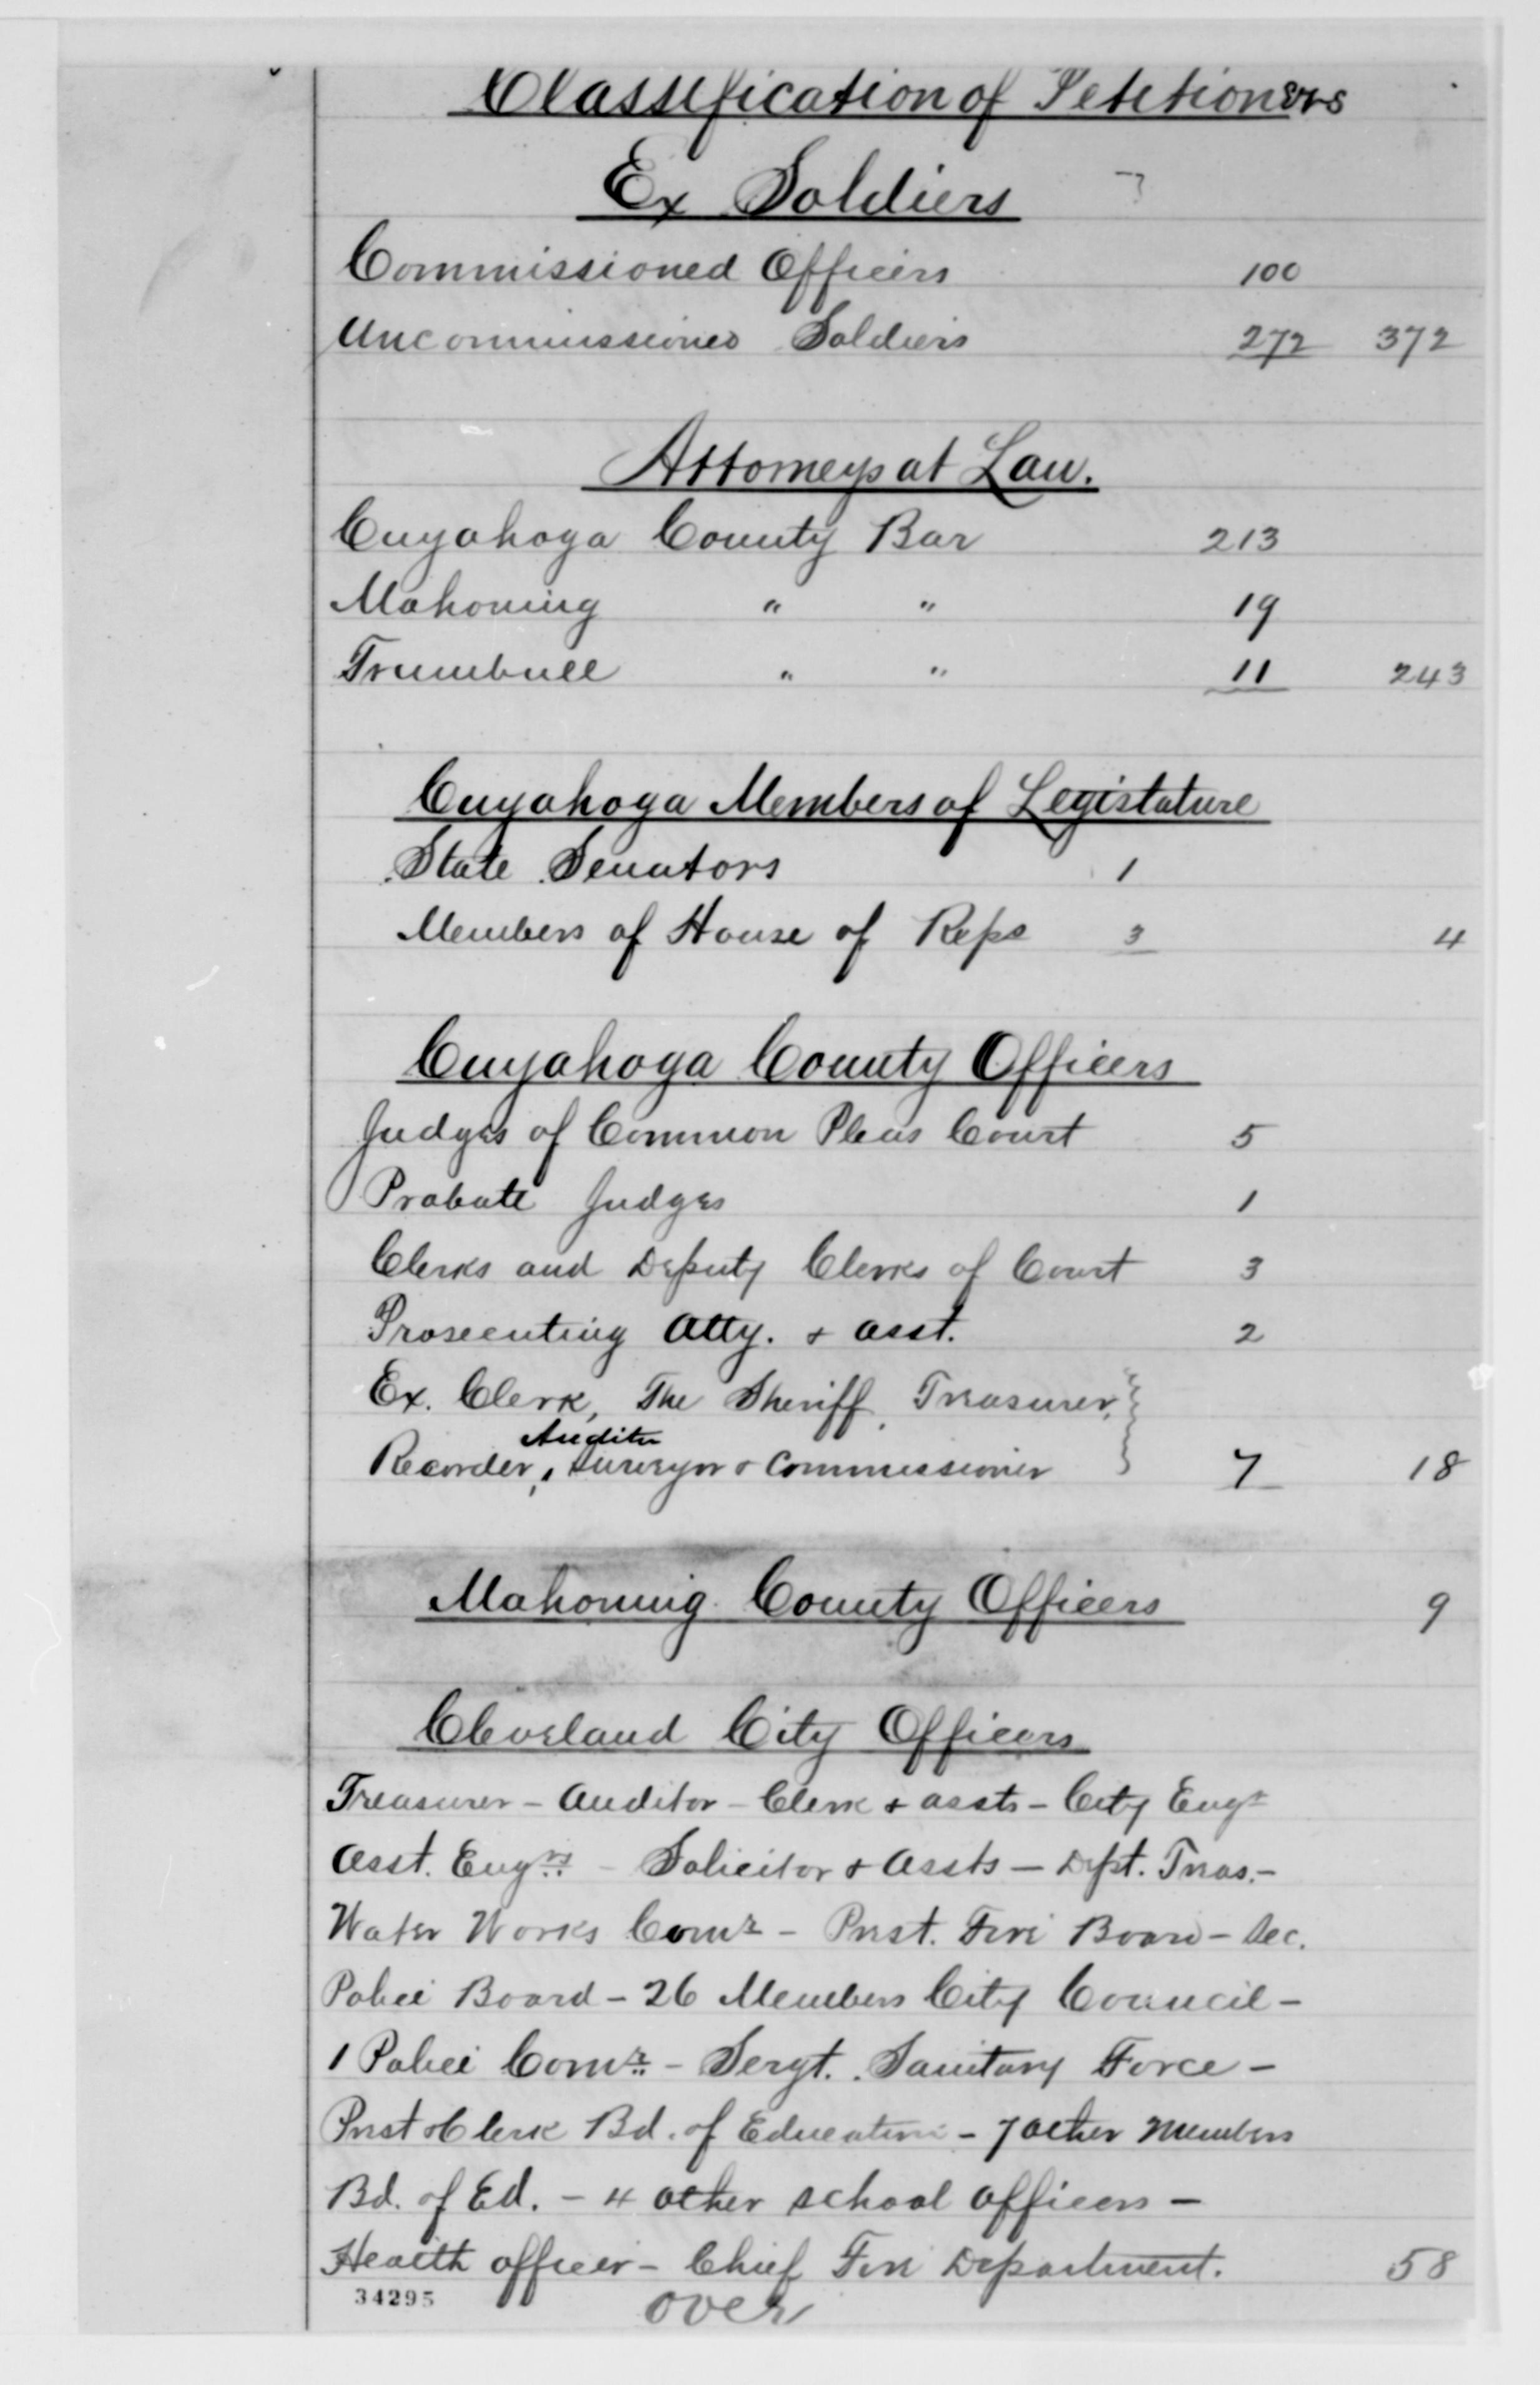 Classification of Petitioners
Ex Soldiers
Commissioned Officers 100
Uncommissioned Soldiers 272 372
Attorneys at Law.
Cuyahoga County Bar 213
Mahoning " " 19
Trumbull " " 11 243
Cuyahoga Members of Legislature
State Senators 1
Members of House of Reps 3 4
Cuyahoga County Officers
Judges of Common Pleas Court 5
Probate Judges 1
Clerks and Deputy Clerks of Court 3
Prosecuting Atty. + asst. 2
Ex. Clerk, The Sheriff, Treasurer,
Auditor
Recorder, Surveyor + Commissioner 7 18
Mahoning County Officers 9
Cleveland City Officers
Treasurer - Auditor - Clerk + assts - City Engr
Asst. Engrs - Solicitor + Assts - Dept. Treas. -
Water Works Comr - Prest. Fire Board - Sec.
Police Board - 26 Members City Council -
1 Police Comr - Sergt. Sanitary Force -
Prest + Clerk Bd. of Education - 7 other Members
Bd. of Ed. - 4 other school officers -
Health officer - Chief Fire Department. 58
34295
over